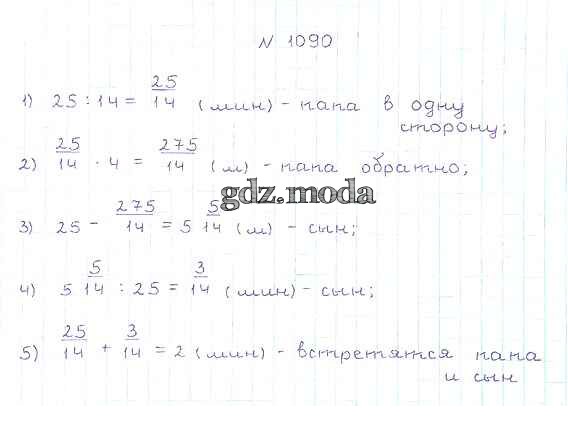 N 1090
1) 25 : 14 = 25/14 (мин) - папа в одну
сторону;
2) 25/14 · 4 = 275/14 (м) - папа обратно;
gdz.moda
3) 25 - 275/14 = 5 5/14 (м) - сын;
4) 5 5/14 : 25 = 3/14 (мин) - сын;
5) 25/14 + 3/14 = 2 (мин) - встретятся папа
и сын